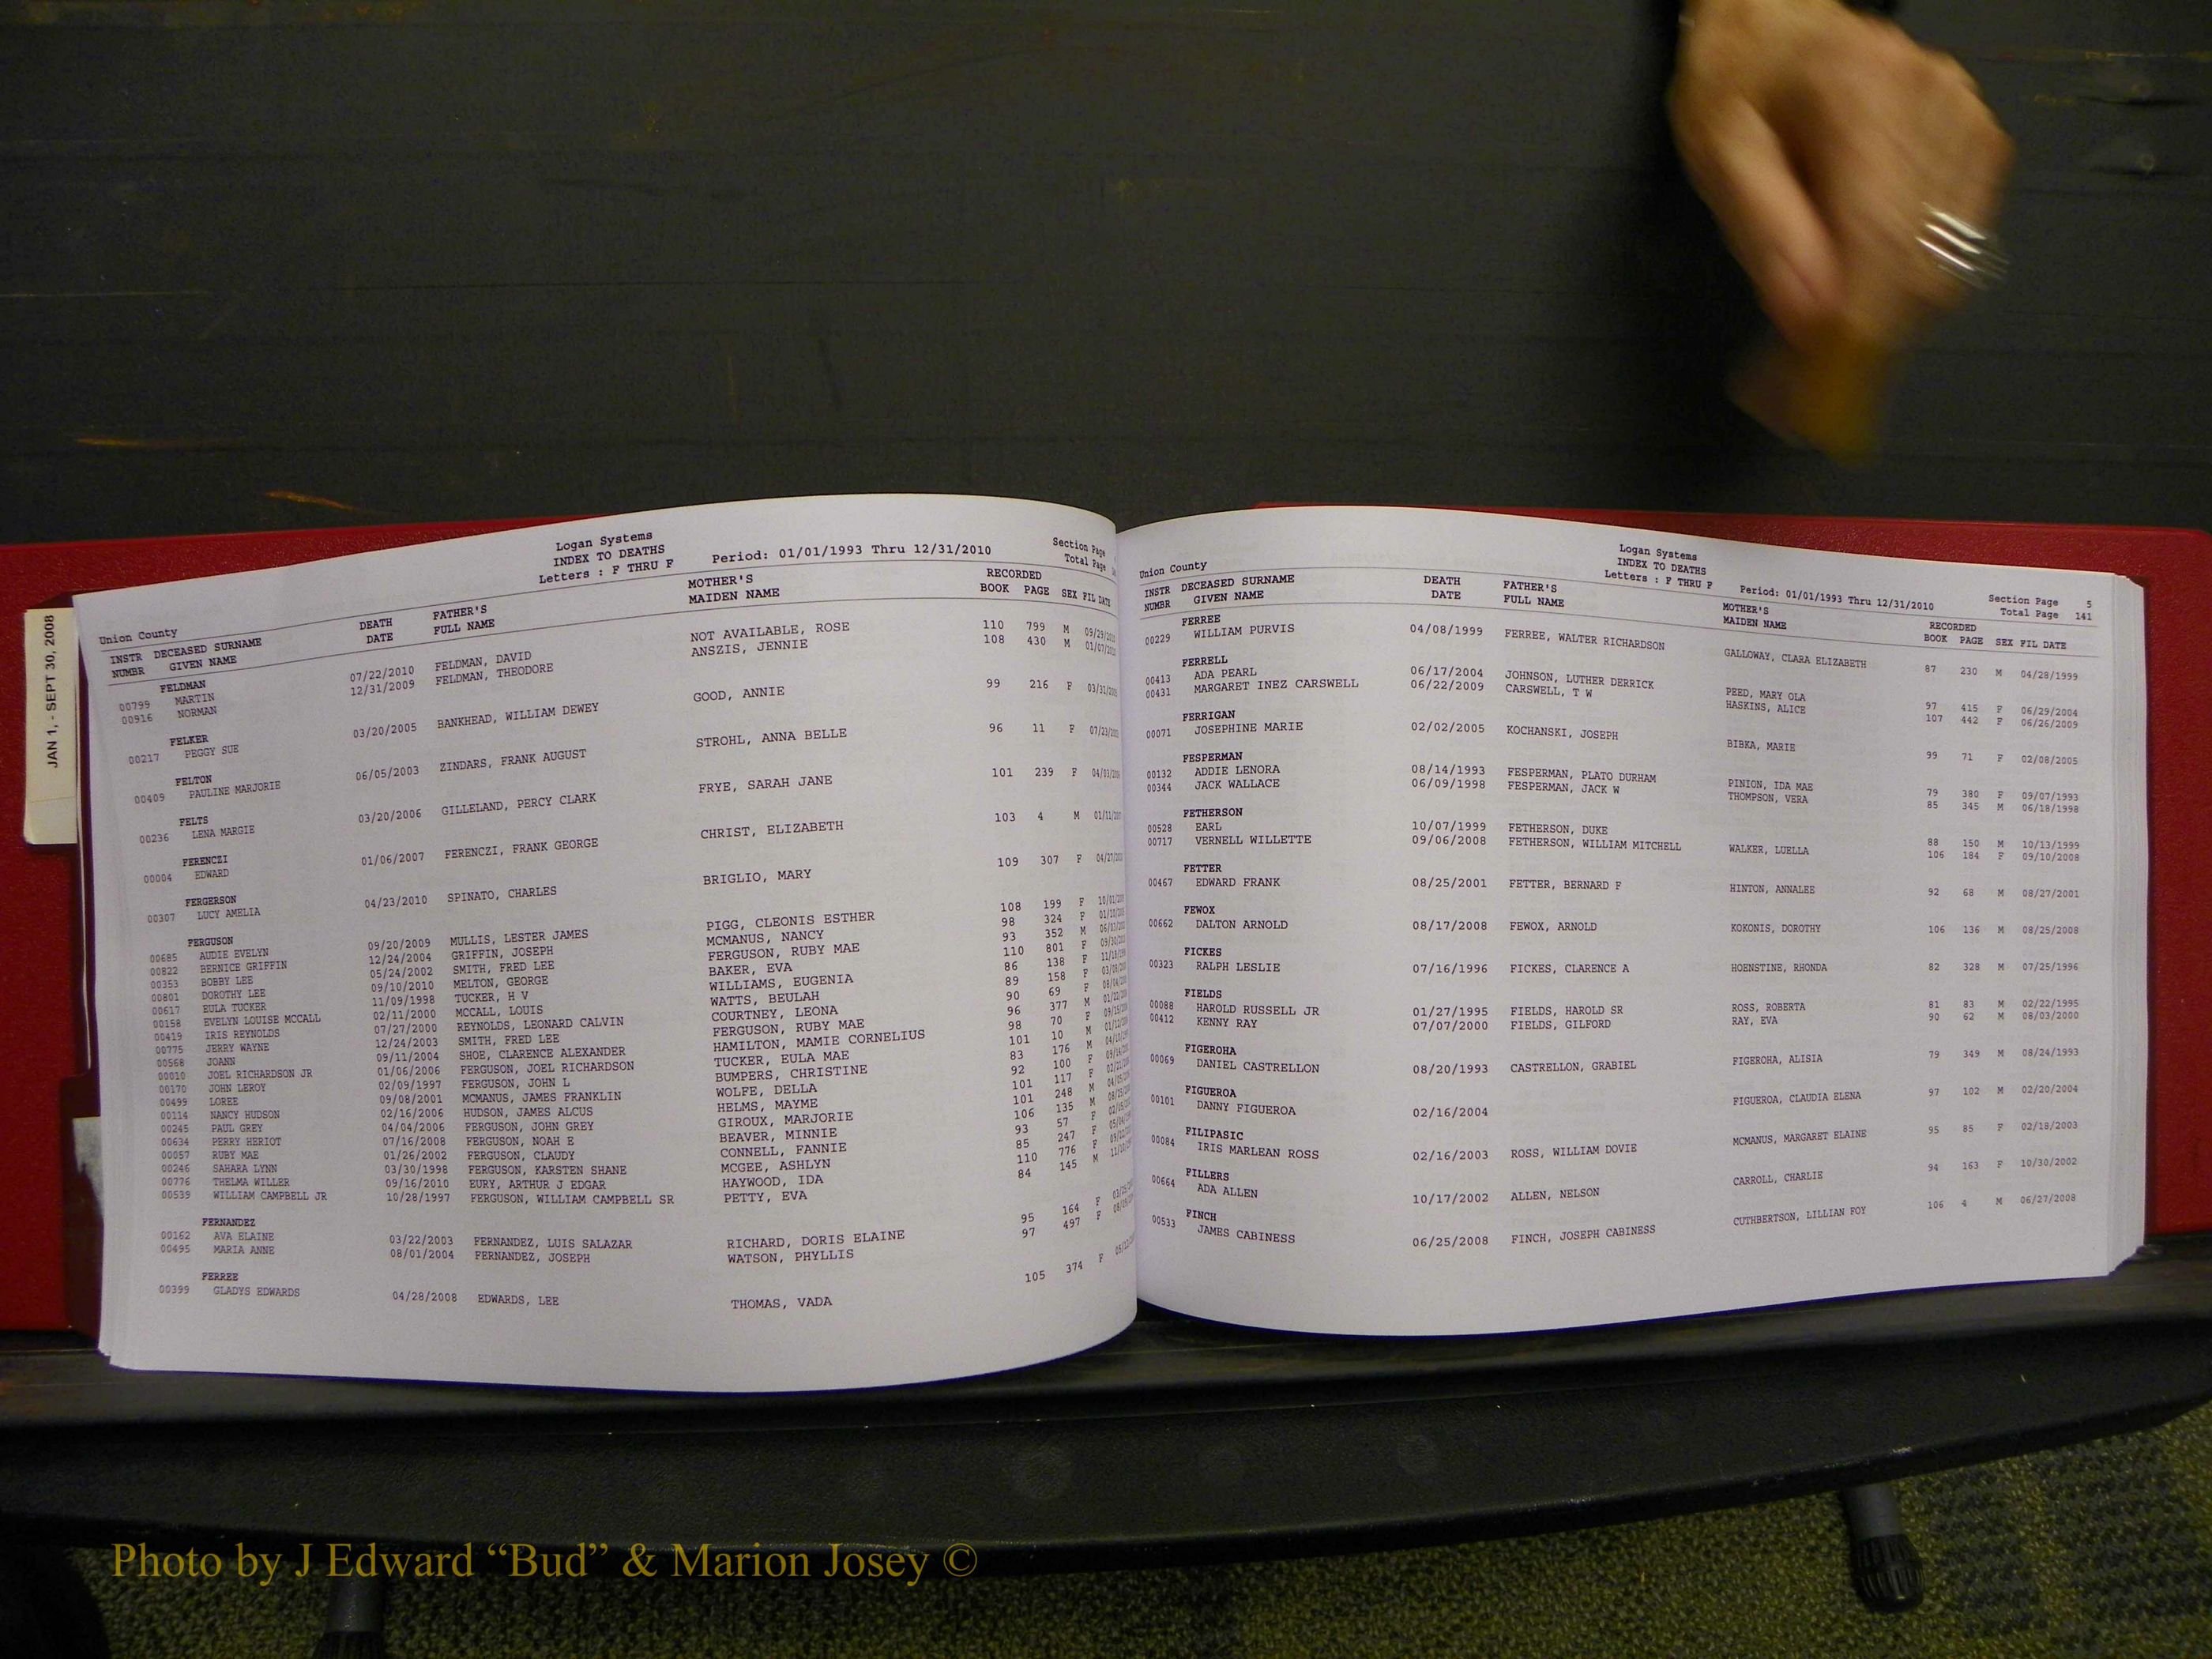 JAN 1, - SEPT 30, 2008
Logan Systems
INDEX TO DEATHS
Letters : F THRU F
Period: 01/01/1993 Thru 12/31/2010
Section Page
Total Page
Union County
INSTR DECEASED SURNAME DEATH FATHER'S MOTHER'S RECORDED
NUMBR GIVEN NAME DATE FULL NAME MAIDEN NAME BOOK PAGE SEX FIL DATE
FELDMAN
00799 MARTIN 07/22/2010 FELDMAN, DAVID NOT AVAILABLE, ROSE 110 799 M
00916 NORMAN 12/31/2009 FELDMAN, THEODORE ANSZIS, JENNIE 108 430 M
FELKER
00217 PEGGY SUE 03/20/2005 BANKHEAD, WILLIAM DEWEY GOOD, ANNIE 99 216 F
FELTON
00409 PAULINE MARJORIE 06/05/2003 ZINDARS, FRANK AUGUST STROHL, ANNA BELLE 96 11 F
FELTS
00236 LENA MARGIE 03/20/2006 GILLELAND, PERCY CLARK FRYE, SARAH JANE 101 239 F
FERENCZI
00004 EDWARD 01/06/2007 FERENCZI, FRANK GEORGE CHRIST, ELIZABETH 103 4 M
FERGERSON
00307 LUCY AMELIA 04/23/2010 SPINATO, CHARLES BRIGLIO, MARY 109 307 F
FERGUSON
00685 AUDIE EVELYN 09/20/2009 MULLIS, LESTER JAMES PIGG, CLEONIS ESTHER 108 199 F
00822 BERNICE GRIFFIN 12/24/2004 GRIFFIN, JOSEPH MCMANUS, NANCY 98 324 F
00353 BOBBY LEE 05/24/2002 SMITH, FRED LEE FERGUSON, RUBY MAE 93 352 M
00801 DOROTHY LEE 09/10/2010 MELTON, GEORGE BAKER, EVA 110 801 F
00617 EULA TUCKER 11/09/1998 TUCKER, H V WILLIAMS, EUGENIA 86 138 F
00158 EVELYN LOUISE MCCALL 02/11/2000 MCCALL, LOUIS WATTS, BEULAH 89 158 F
00419 IRIS REYNOLDS 07/27/2000 REYNOLDS, LEONARD CALVIN COURTNEY, LEONA 90 69 F
00775 JERRY WAYNE 12/24/2003 SMITH, FRED LEE FERGUSON, RUBY MAE 96 377 M
00568 JOANN 09/11/2004 SHOE, CLARENCE ALEXANDER HAMILTON, MAMIE CORNELIUS 98 70 F
00010 JOEL RICHARDSON JR 01/06/2006 FERGUSON, JOEL RICHARDSON TUCKER, EULA MAE 101 10 M
00170 JOHN LEROY 02/09/1997 FERGUSON, JOHN L BUMPERS, CHRISTINE 83 176 M
00499 LOREE 09/08/2001 MCMANUS, JAMES FRANKLIN WOLFE, DELLA 92 100 F
00114 NANCY HUDSON 02/16/2006 HUDSON, JAMES ALCUS HELMS, MAYME 101 117 F
00245 PAUL GREY 04/04/2006 FERGUSON, JOHN GREY GIROUX, MARJORIE 101 248 M
00634 PERRY HERIOT 07/16/2008 FERGUSON, NOAH E BEAVER, MINNIE 106 135 M
00057 RUBY MAE 01/26/2002 FERGUSON, CLAUDY CONNELL, FANNIE 93 57 F
00246 SAHARA LYNN 03/30/1998 FERGUSON, KARSTEN SHANE MCGEE, ASHLYN 85 247 F
00776 THELMA WILLER 09/16/2010 EURY, ARTHUR J EDGAR HAYWOOD, IDA 110 776 F
00539 WILLIAM CAMPBELL JR 10/28/1997 FERGUSON, WILLIAM CAMPBELL SR PETTY, EVA 84 145 M
FERNANDEZ
00162 AVA ELAINE 03/22/2003 FERNANDEZ, LUIS SALAZAR RICHARD, DORIS ELAINE 95 164 F
00495 MARIA ANNE 08/01/2004 FERNANDEZ, JOSEPH WATSON, PHYLLIS 97 497 F
FERREE
00399 GLADYS EDWARDS 04/28/2008 EDWARDS, LEE THOMAS, VADA 105 374 F
Logan Systems
INDEX TO DEATHS
Letters : F THRU F
Period: 01/01/1993 Thru 12/31/2010
Section Page 5
Total Page 141
Union County
INSTR DECEASED SURNAME DEATH FATHER'S MOTHER'S RECORDED
NUMBR GIVEN NAME DATE FULL NAME MAIDEN NAME BOOK PAGE SEX FIL DATE
FERREE
00229 WILLIAM PURVIS 04/08/1999 FERREE, WALTER RICHARDSON GALLOWAY, CLARA ELIZABETH 87 230 M 04/28/1999
FERRELL
00413 ADA PEARL 06/17/2004 JOHNSON, LUTHER DERRICK PEED, MARY OLA 97 415 F 06/29/2004
00431 MARGARET INEZ CARSWELL 06/22/2009 CARSWELL, T W HASKINS, ALICE 107 442 F 06/26/2009
FERRIGAN
00071 JOSEPHINE MARIE 02/02/2005 KOCHANSKI, JOSEPH BIBKA, MARIE 99 71 F 02/08/2005
FESPERMAN
00132 ADDIE LENORA 08/14/1993 FESPERMAN, PLATO DURHAM PINION, IDA MAE 79 380 F 09/07/1993
00344 JACK WALLACE 06/09/1998 FESPERMAN, JACK W THOMPSON, VERA 85 345 M 06/18/1998
FETHERSON
00528 EARL 10/07/1999 FETHERSON, DUKE 88 150 M 10/13/1999
00717 VERNELL WILLETTE 09/06/2008 FETHERSON, WILLIAM MITCHELL WALKER, LUELLA 106 184 F 09/10/2008
FETTER
00467 EDWARD FRANK 08/25/2001 FETTER, BERNARD F HINTON, ANNALEE 92 68 M 08/27/2001
FEWOX
00662 DALTON ARNOLD 08/17/2008 FEWOX, ARNOLD KOKONIS, DOROTHY 106 136 M 08/25/2008
FICKES
00323 RALPH LESLIE 07/16/1996 FICKES, CLARENCE A HOENSTINE, RHONDA 82 328 M 07/25/1996
FIELDS
00088 HAROLD RUSSELL JR 01/27/1995 FIELDS, HAROLD SR ROSS, ROBERTA 81 83 M 02/22/1995
00412 KENNY RAY 07/07/2000 FIELDS, GILFORD RAY, EVA 90 62 M 08/03/2000
FIGEROHA
00069 DANIEL CASTRELLON 08/20/1993 CASTRELLON, GRABIEL FIGEROHA, ALISIA 79 349 M 08/24/1993
FIGUEROA
00101 DANNY FIGUEROA 02/16/2004 FIGUEROA, CLAUDIA ELENA 97 102 M 02/20/2004
FILIPASIC
00084 IRIS MARLEAN ROSS 02/16/2003 ROSS, WILLIAM DOVIE MCMANUS, MARGARET ELAINE 95 85 F 02/18/2003
FILLERS
00664 ADA ALLEN 10/17/2002 ALLEN, NELSON CARROLL, CHARLIE 94 163 F 10/30/2002
FINCH
00533 JAMES CABINESS 06/25/2008 FINCH, JOSEPH CABINESS CUTHBERTSON, LILLIAN FOY 106 4 M 06/27/2008
Photo by J Edward “Bud” & Marion Josey ©